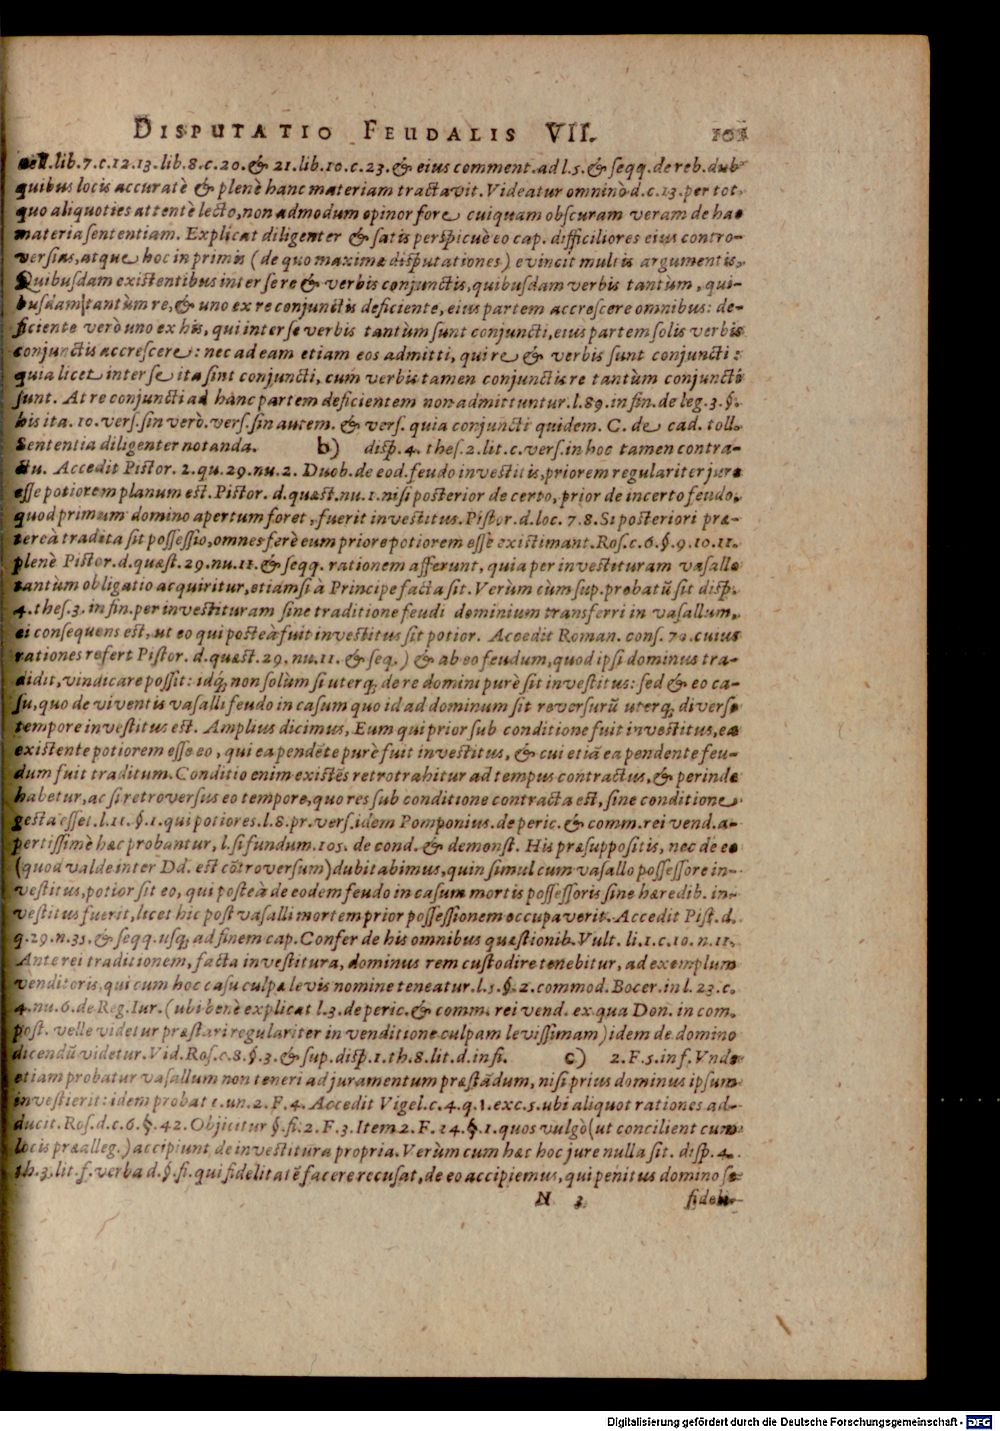 DISPUTATIO FEUDALIS VII. 101
nell. lib. 7. c. 12. 13. lib. 8. c. 20. & 21. lib. 10. c. 23. & eius comment. ad l. 5. & seqq. de reb. dub.
quibus locis accuratè & plenè hanc materiam tractavit. Videatur omninò d. c. 13. per tot.
quo aliquoties attentè lecto, non admodum opinor fore cuiquam obscuram veram de hac
materia sententiam. Explicat diligenter & satis perspicuè eo cap. difficiliores eius contro-
versias, atque hoc inprimis (de quo maximæ disputationes) evincit multis argumentis,
Quibusdam existentibus inter se re & verbis conjunctis, quibusdam verbis tantùm, qui-
busdam tantùm re, & uno ex re conjunctis deficiente, eius partem accrescere omnibus: de-
ficiente verò uno ex his, qui inter se verbis tantùm sunt conjuncti, eius partem solis verbis
conjunctis accrescere: nec ad eam etiam eos admitti, qui re & verbis sunt conjuncti:
quia licet inter se ita sint conjuncti, cum verbis tamen conjunctis re tantùm conjuncti
sunt. At re conjuncti ad hanc partem deficientem non admittuntur. l. 89. in fin. de leg. 3. §.
his ita. 10. vers. sin verò. vers. sin autem. & vers. quia conjuncti quidem. C. de cad. toll.
Sententia diligenter notanda. b) disp. 4. thes. 2. lit. c. vers. in hoc tamen contra-
ctu. Accedit Pistor. 2. qu. 29. nu. 2. Duob. de eod. feudo investitis, priorem regulariter jure
esse potiorem planum est. Pistor. d. quæst. nu. 1. nisi posterior de certo, prior de incerto feudo,
quod primum domino apertum foret, fuerit investitus. Pistor. d. loc. 7. 8. Si posteriori præ-
tereà tradita sit possessio, omnes ferè eum priore potiorem esse existimant. Ros. c. 6. §. 9. 10. 11.
plenè Pistor. d. quæst. 29. nu. 11. & seqq. rationem afferunt, quia per investituram vasallo
tantùm obligatio acquiritur, etiamsi à Principe facta sit. Verùm cùm sup. probatũ sit disp.
4. thes. 3. in fin. per investituram sine traditione feudi dominium transferri in vasallum,
ei consequens est, ut eo qui posteà fuit investitus sit potior. Accedit Roman. cons. 70. cuius
rationes refert Pistor. d. quæst. 29. nu. 11. & seq.) & ab eo feudum, quod ipsi dominus tra-
didit, vindicare possit: idq; non solùm si uterq; de re domini purè sit investitus: sed & eo ca-
su, quo de viventis vasalli feudo in casum quo id ad dominum sit reversurũ uterq; diverso
tempore investitus est. Amplius dicimus, Eum qui prior sub conditione fuit investitus, ea
existente potiorem esse eo, qui ea pendẽte purè fuit investitus, & cui etiã ea pendente feu-
dum fuit traditum. Conditio enim existẽs retrotrahitur ad tempus contractus, & perinde
habetur, ac si retroversus eo tempore, quo res sub conditione contracta est, sine conditione
gesta esset. l. 11. §. 1. qui potiores. l. 8. pr. vers. idem Pomponius. de peric. & comm. rei vend. a-
pertissimè hæc probantur, l. si fundum. 105. de cond. & demonst. His præsuppositis, nec de eo
(quod valde inter Dd. est cõtroversum) dubitabimus, quin simul cum vasallo possessore in-
vestitus, potior sit eo, qui posteà de eodem feudo in casum mortis possessoris sine hæredib. in-
vestitus fuerit, licet hic post vasalli mortem prior possessionem occupaverit. Accedit Pist. d.
q. 29. n. 35. & seqq. usq; ad finem cap. Confer de his omnibus quæstionib. Vult. li. 1. c. 10. n. 11.
Ante rei traditionem, facta investitura, dominus rem custodire tenebitur, ad exemplum
venditoris, qui cum hoc casu culpæ levis nomine teneatur. l. 5. §. 2. commod. Bocer. in l. 23. c.
4. nu. 6. de Reg. Iur. (ubi benè explicat l. 3. de peric. & comm. rei vend. ex qua Don. in com.
post. velle videtur præstari regulariter in venditione culpam levissimam) idem de domino
dicendũ videtur. Vid. Ros. c. 8. §. 3. & sup. disp. 1. th. 8. lit. d. in fi. c) 2. F. 5. in f. Vnde
etiam probatur vasallum non teneri ad juramentum præstãdum, nisi prius dominus ipsum
investierit: idem probat c. un. 2. F. 4. Accedit Vigel. c. 4. q. 1. exc. 5. ubi aliquot rationes ad-
ducit. Ros. d. c. 6. §. 42. Objicitur §. fi. 2. F. 3. Item 2. F. 14. §. 1. quos vulgò (ut concilient cum
locis præalleg.) accipiunt de investitura propria. Verùm cum hæc hoc jure nulla sit. disp. 4.
th. 3. lit. f. verba d. §. fi. qui fidelitatẽ facere recusat, de eo accipiemus, qui penitus domino se
N 3 fideli-
Digitalisierung gefördert durch die Deutsche Forschungsgemeinschaft - DFG